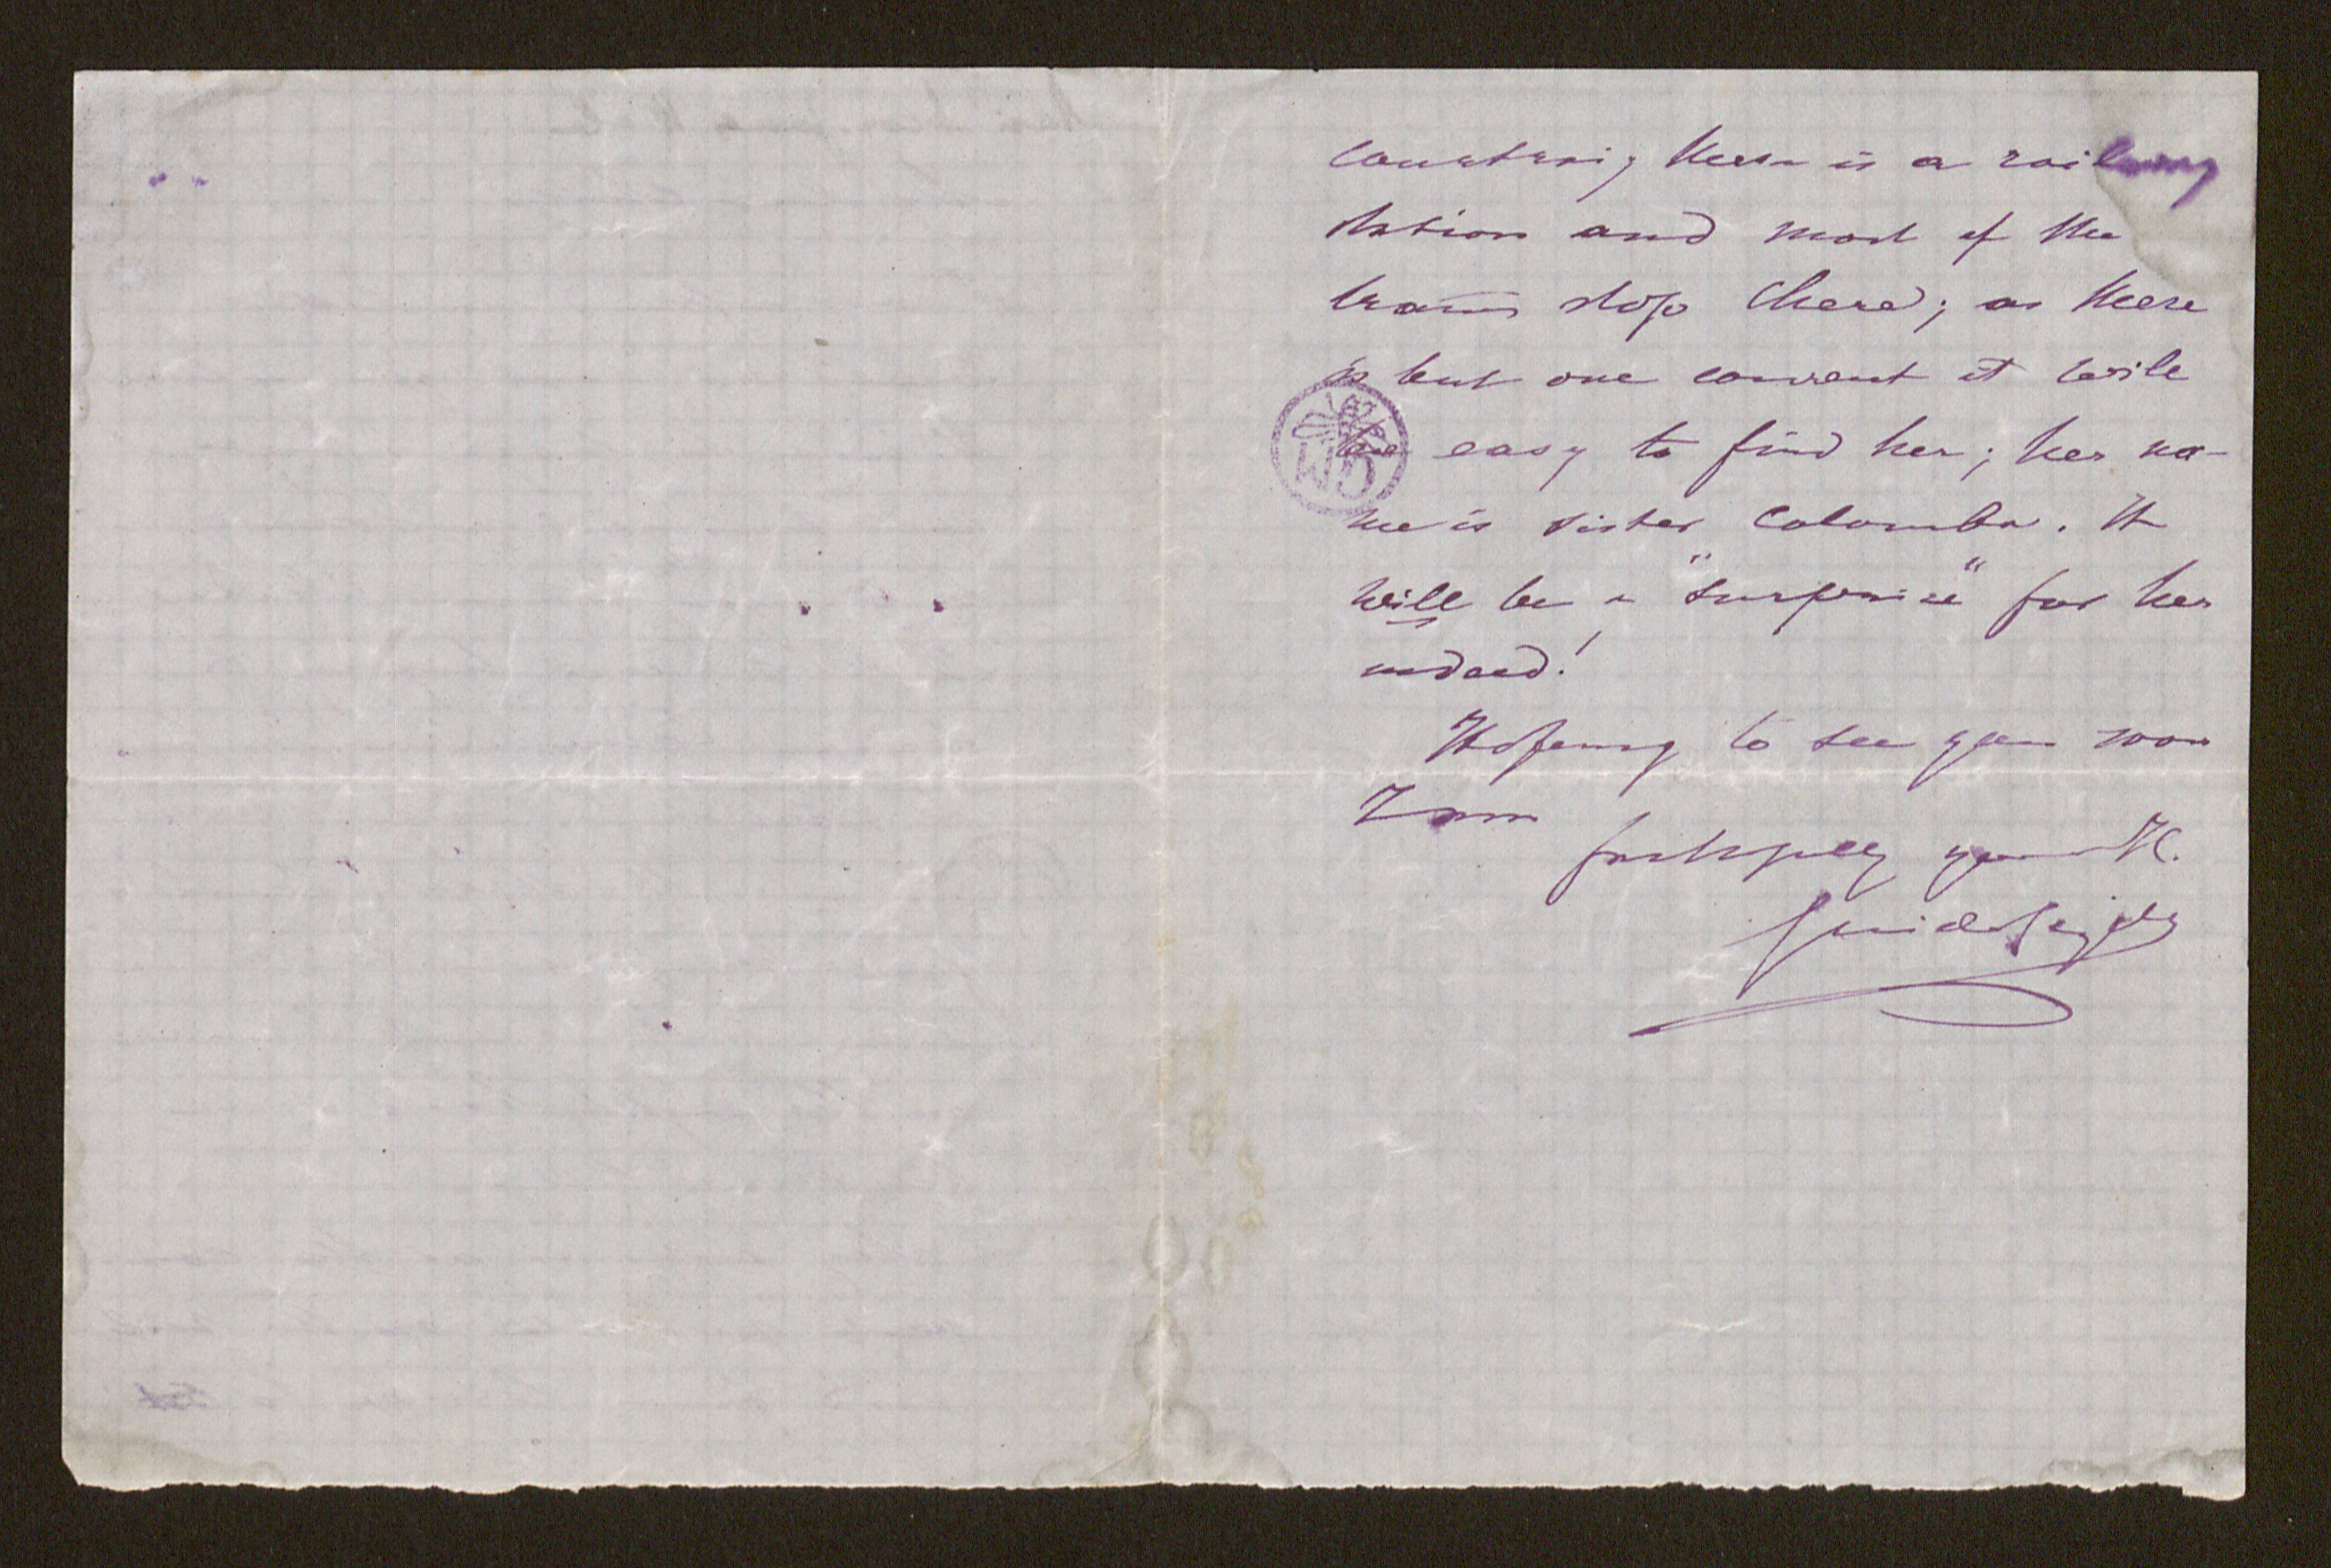 country; there is a railway
station and most of the
trains stop there; as there
is but one convent it will
be easy to find her; her na-
me is sister Colomba. It
will be a "surprise" for her
indeed!
Hoping to see you soon
I am
faithfully yours
Guido Gezelle
WB